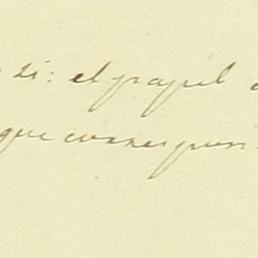 si: el papel
que corres pon